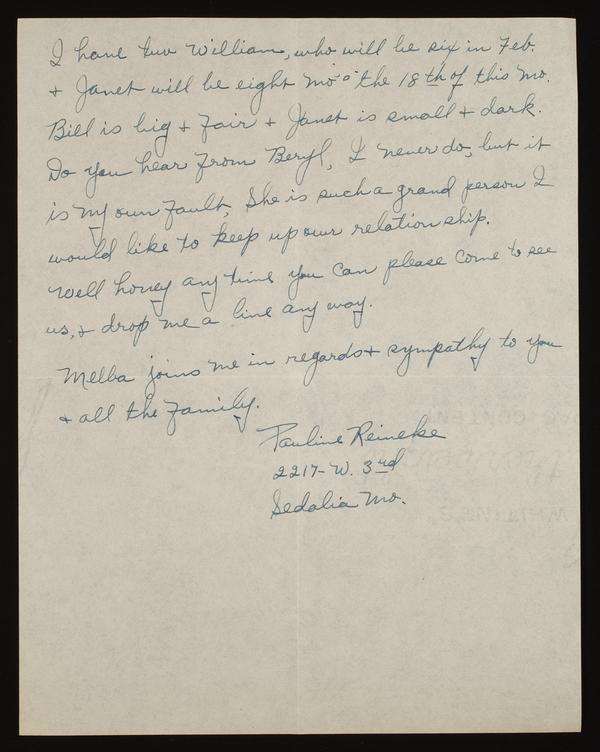 I have two William, who will be six in Feb.
+ Janet will be eight mo's the 18th of this mo.
Bill is big + fair + Janet is small + dark.
Do you hear from Beryl, I never do, but it
is my own fault, She is such a grand person I
would like to keep up our relationship.
Well honey any time you can please come to see
us, + drop me a line any way.
Melba joins me in regards + sympathy to you
+ all the family.
Pauline Reineke
2217- W. 3rd
Sedalia Mo.